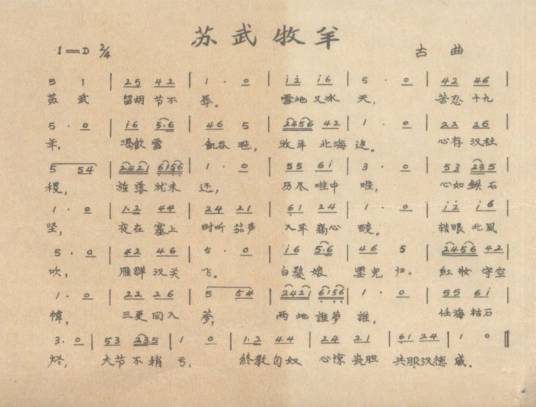 苏武牧羊
1=D 2/4 古曲
5 1 | 25 42 | 1 · 0 | i2 i6 | 5 · 0 | 42 46
苏武 留胡节不辱, 雪地又冰天, 苦忍十九
5 · 0 | i6 5·6 | 46 5 | 2456 42 | 1 · 0 | 22 26
年, 渴飲雪 飢吞毡, 牧羊北海边. 心存汉社
5 54 | 2421 6156 | 1 · 0 | 55 61 | 3 · 0 | 53 235
稷, 旄落犹未还, 历尽难中难, 心如铁石
1 · 0 | 1·2 44 | 24 21 | 61 24 | 1 · 0 | i2 i6
坚, 夜在塞上 时听笳声 入耳痛心酸. 转眼北風
5 · 0 | 42 46 | 5 · 0 | i6 5·6 | 46 5 | 2456 42
吹, 雁群汉关飞. 白髮娘 望兒归. 紅妝守空
1 · 0 | 22 26 | 5 54 | 2421 6156 | 1 · 0 | 55 61
幃, 三更同入夢, 两地誰夢誰, 任海枯石
3 · 0 | 53 235 | 1 0 | 1·2 44 | 24 21 | 61 24 | 1 0
大节不稍亏, 終教匈奴 心惊 胆 共服汉德威.